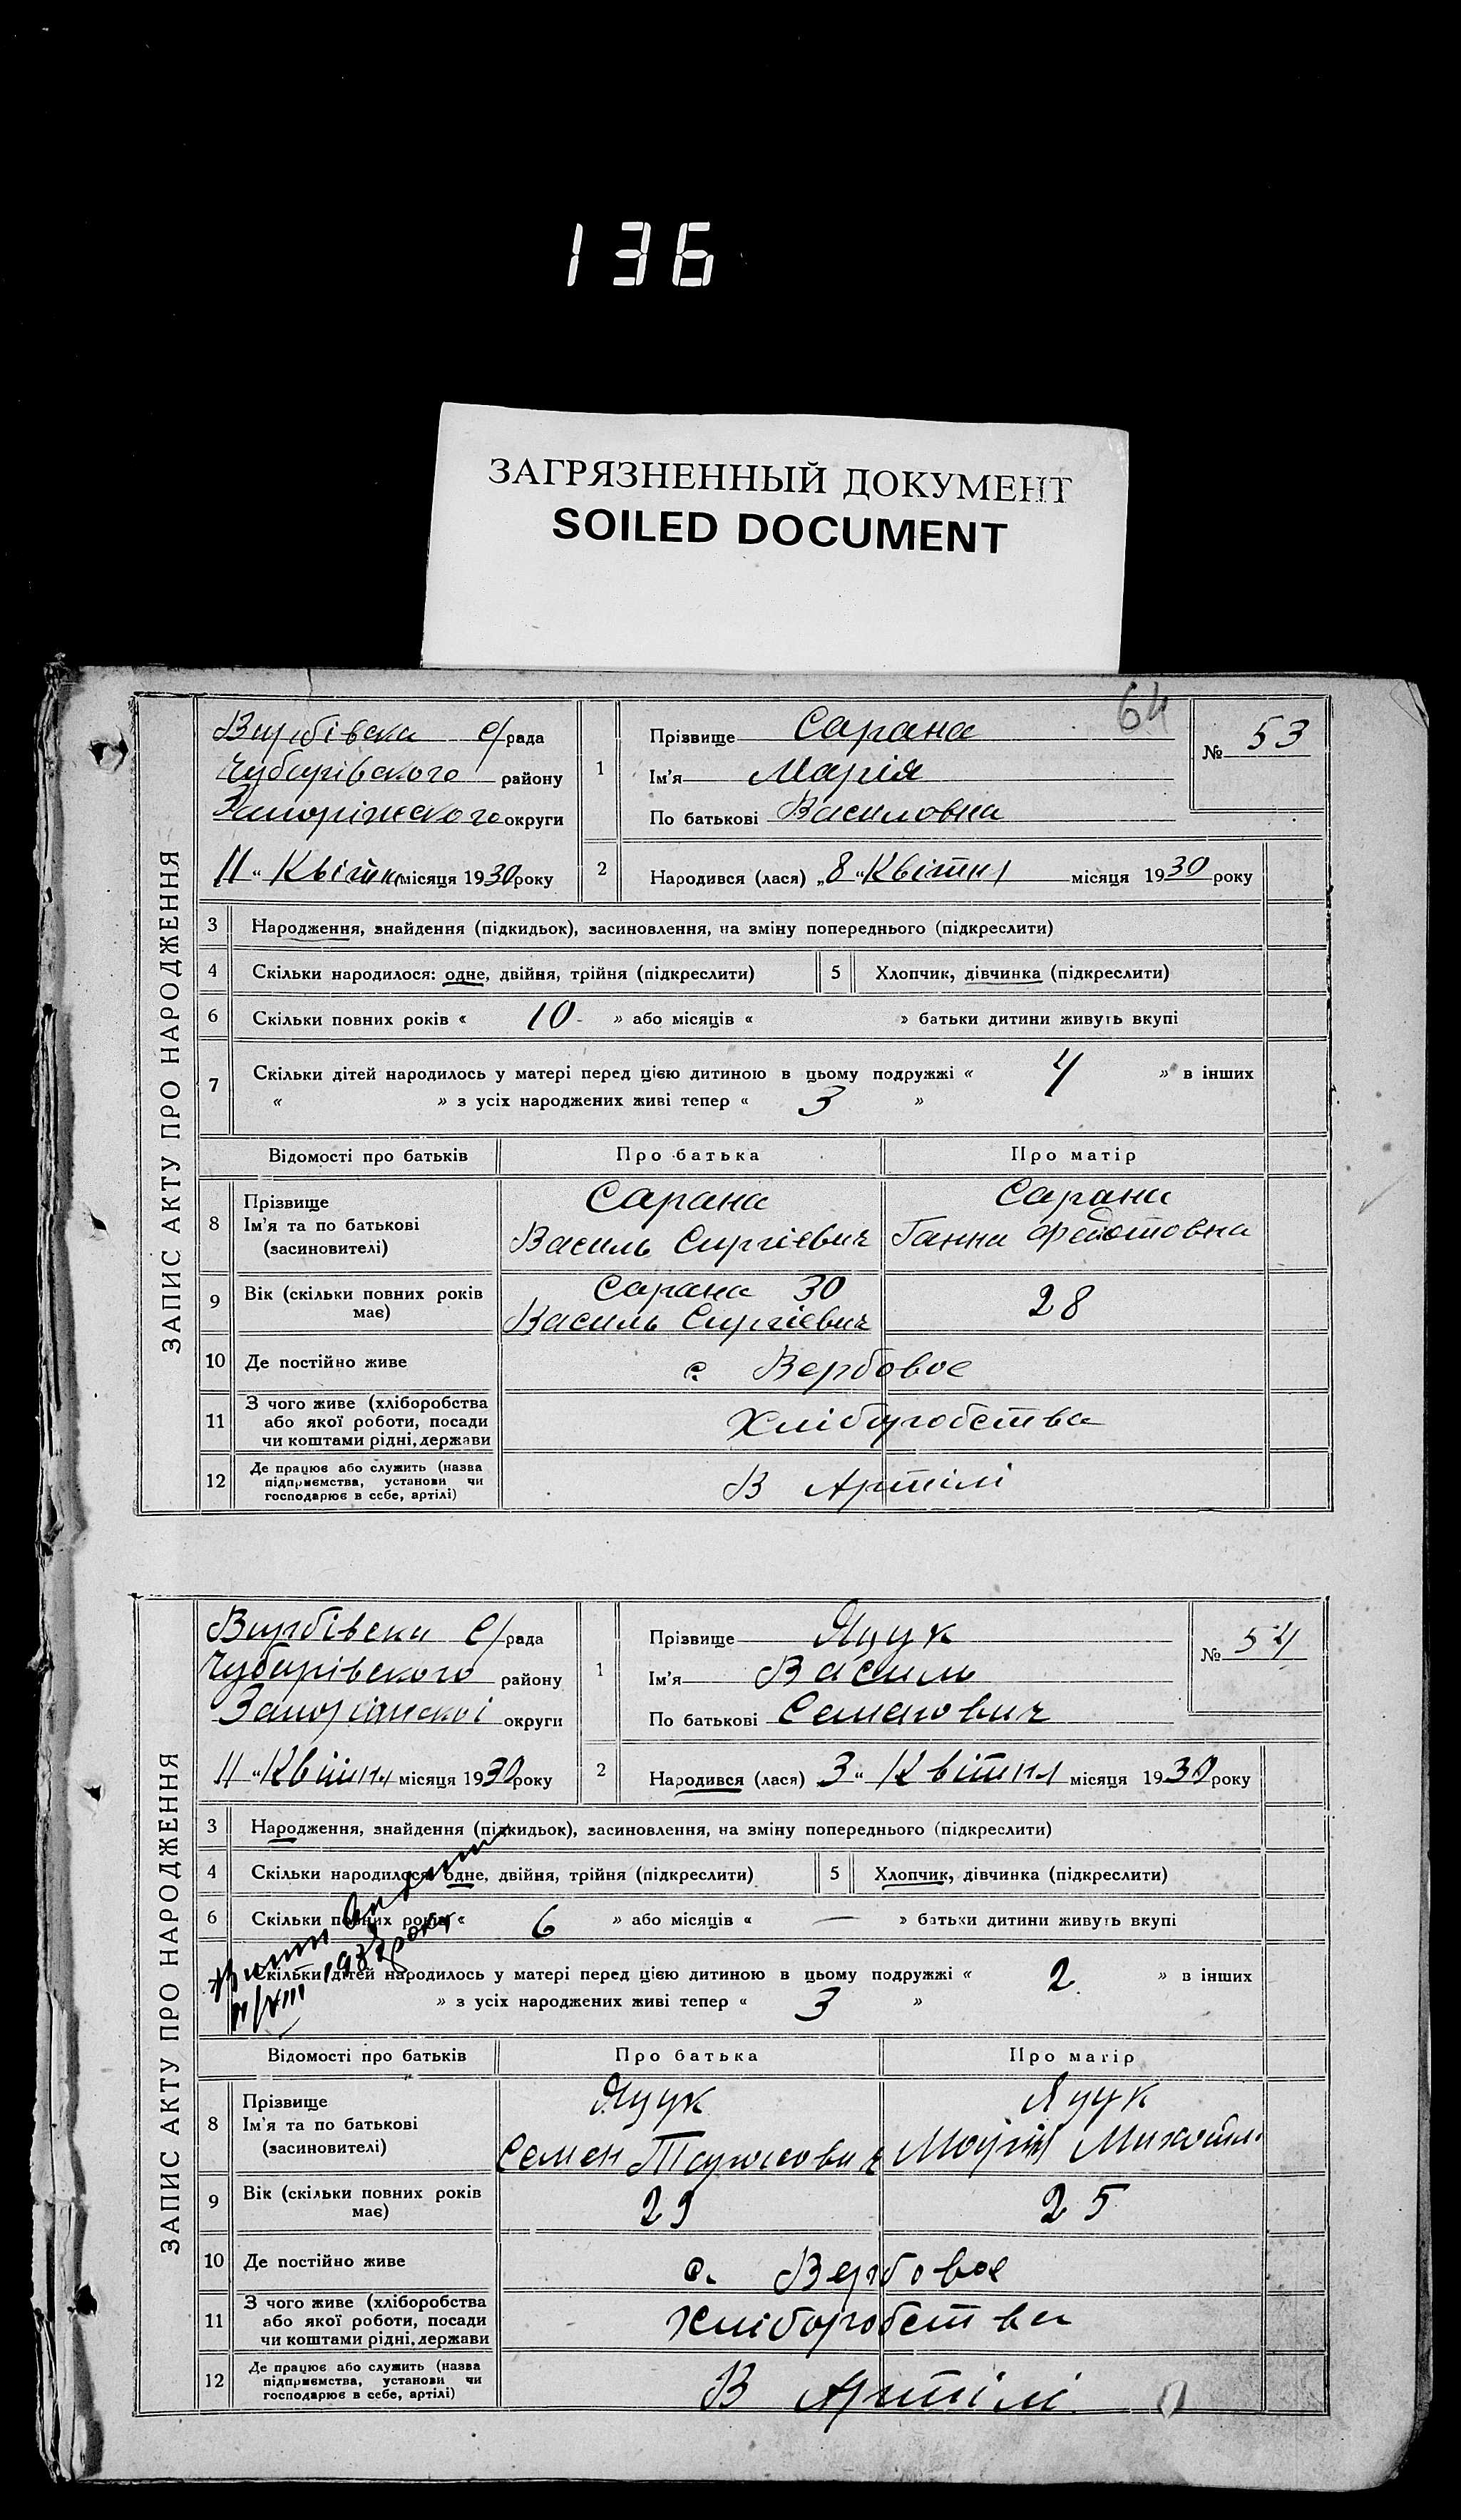 136
ЗАГРЯЗНЕННЫЙ ДОКУМЕНТ
SOILED DOCUMENT
64
ЗАПИС АКТУ ПРО НАРОДЖЕННЯ
Вирбівска с/рада
Чубарівского району
Запоріжского округи
11 "Квітня місяця 1930 року
1 Прізвище Сарана
Ім'я Марія
По батькові Василовна
№ 53
2 Народився (лася) „8 "Квітня місяця 1930 року
3 Народження, знайдення (підкидьок), засиновлення, на зміну попереднього (підкреслити)
4 Скільки народилося: одне, двійня, трійня (підкреслити) 5 Хлопчик, дівчинка (підкреслити)
6 Скільки повних років « 10 » або місяців « » батьки дитини живуть вкупі
7 Скільки дітей народилось у матері перед цією дитиною в цьому подружжі « 4 » в інших
« » з усіх народжених живі тепер « 3 »
Відомості про батьків Про батька Про матір
8 Прізвище Сарана Сарана
Ім'я та по батькові Василь Сиргіевич Ганна Федотовна
(засиновителі)
9 Вік (скільки повних років має) Сарана 30 28
Василь Сиргіевич
10 Де постійно живе с. Вербовое
11 З чого живе (хліборобства
або якої роботи, посади Хліборобства
чи коштами рідні, держави
12 Де працює або служить (назва
підприємства, установи чи В Артілі
господарює в себе, артілі)
ЗАПИС АКТУ ПРО НАРОДЖЕННЯ
Вирбівска с/рада
Чубарівского району
округи
11 "Квітня місяця 1930 року
1 Прізвище Яцук
Ім'я Василь
По батькові Семенович
№ 54
2 Народився (лася) 3 "Квітня місяця 1930 року
3 Народження, знайдення (підкидьок), засиновлення, на зміну попереднього (підкреслити)
4 Скільки народилося: одне, двійня, трійня (підкреслити) 5 Хлопчик, дівчинка (підкреслити)
6 Скільки повних років « 6 » або місяців « — » батьки дитини живуть вкупі
Скільки дітей народилось у матері перед цією дитиною в цьому подружжі « 2 » в інших
» з усіх народжених живі тепер « 3 »
Відомості про батьків Про батька Про матір
8 Прізвище Яцук Яцук
Ім'я та по батькові Семен Марія
(засиновителі)
9 Вік (скільки повних років має) 29 25
10 Де постійно живе с. Вербовое
11 З чого живе (хліборобства
або якої роботи, посади Хліборобства
чи коштами рідні, держави
12 Де працює або служить (назва
підприємства, установи чи В Артілі
господарює в себе, артілі)